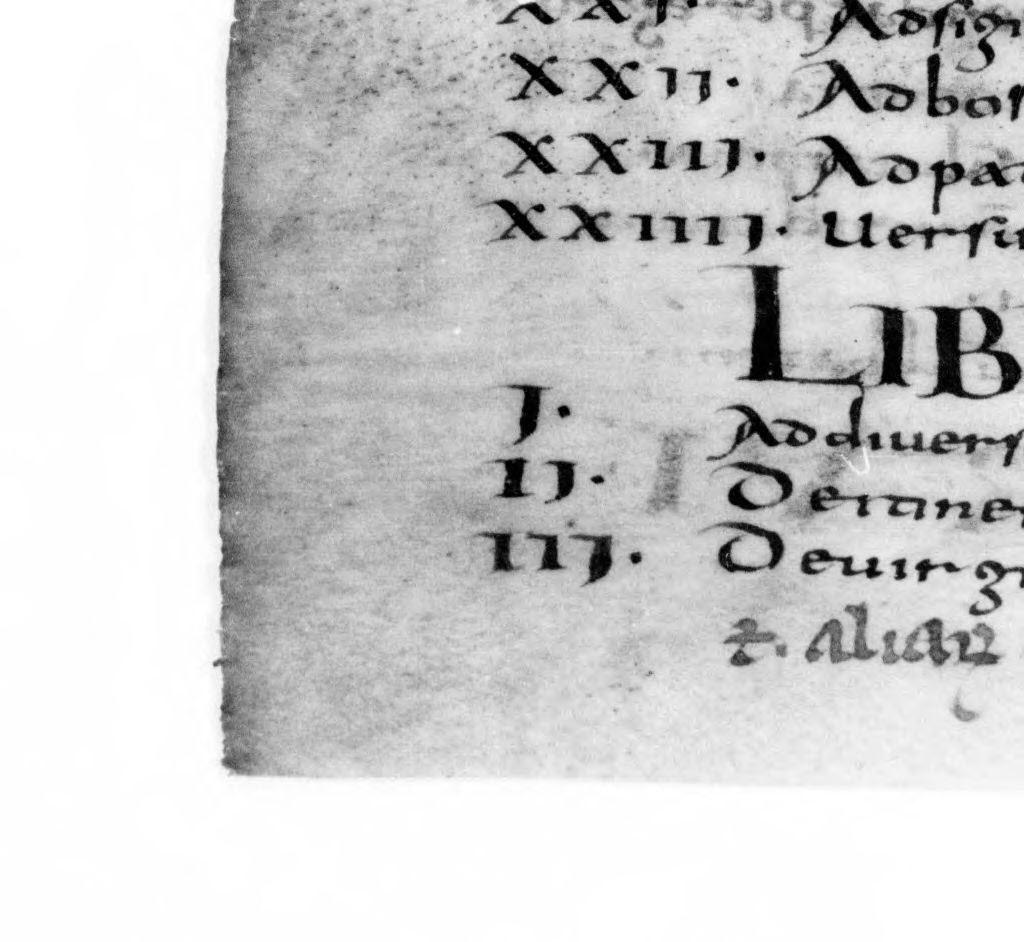 XXI. Adsig
XXII. Adbos
XXIII. Adpa
XXIIII. Uersu
LIB
I. Addiuers
II. Deitine
III. Deuirg
aliar